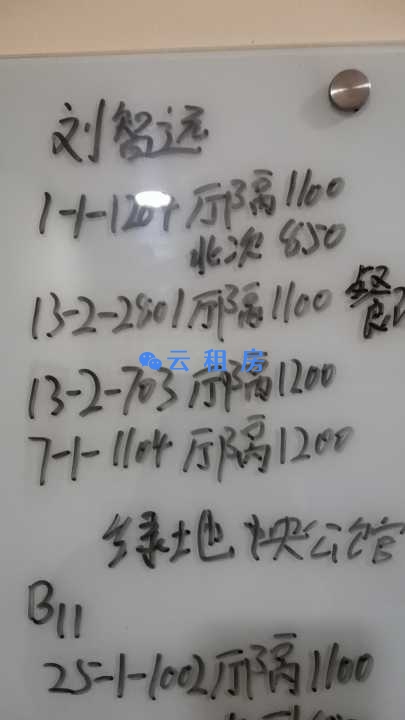 刘智远
1-1-1204 厅隔 1100
北次 850
13-2-2801 厅隔 1100 餐
云租房
13-2-703 厅隔 1200
7-1-1104 厅隔 1200
绿地 快公馆
B11
25-1-1002 厅隔 1100